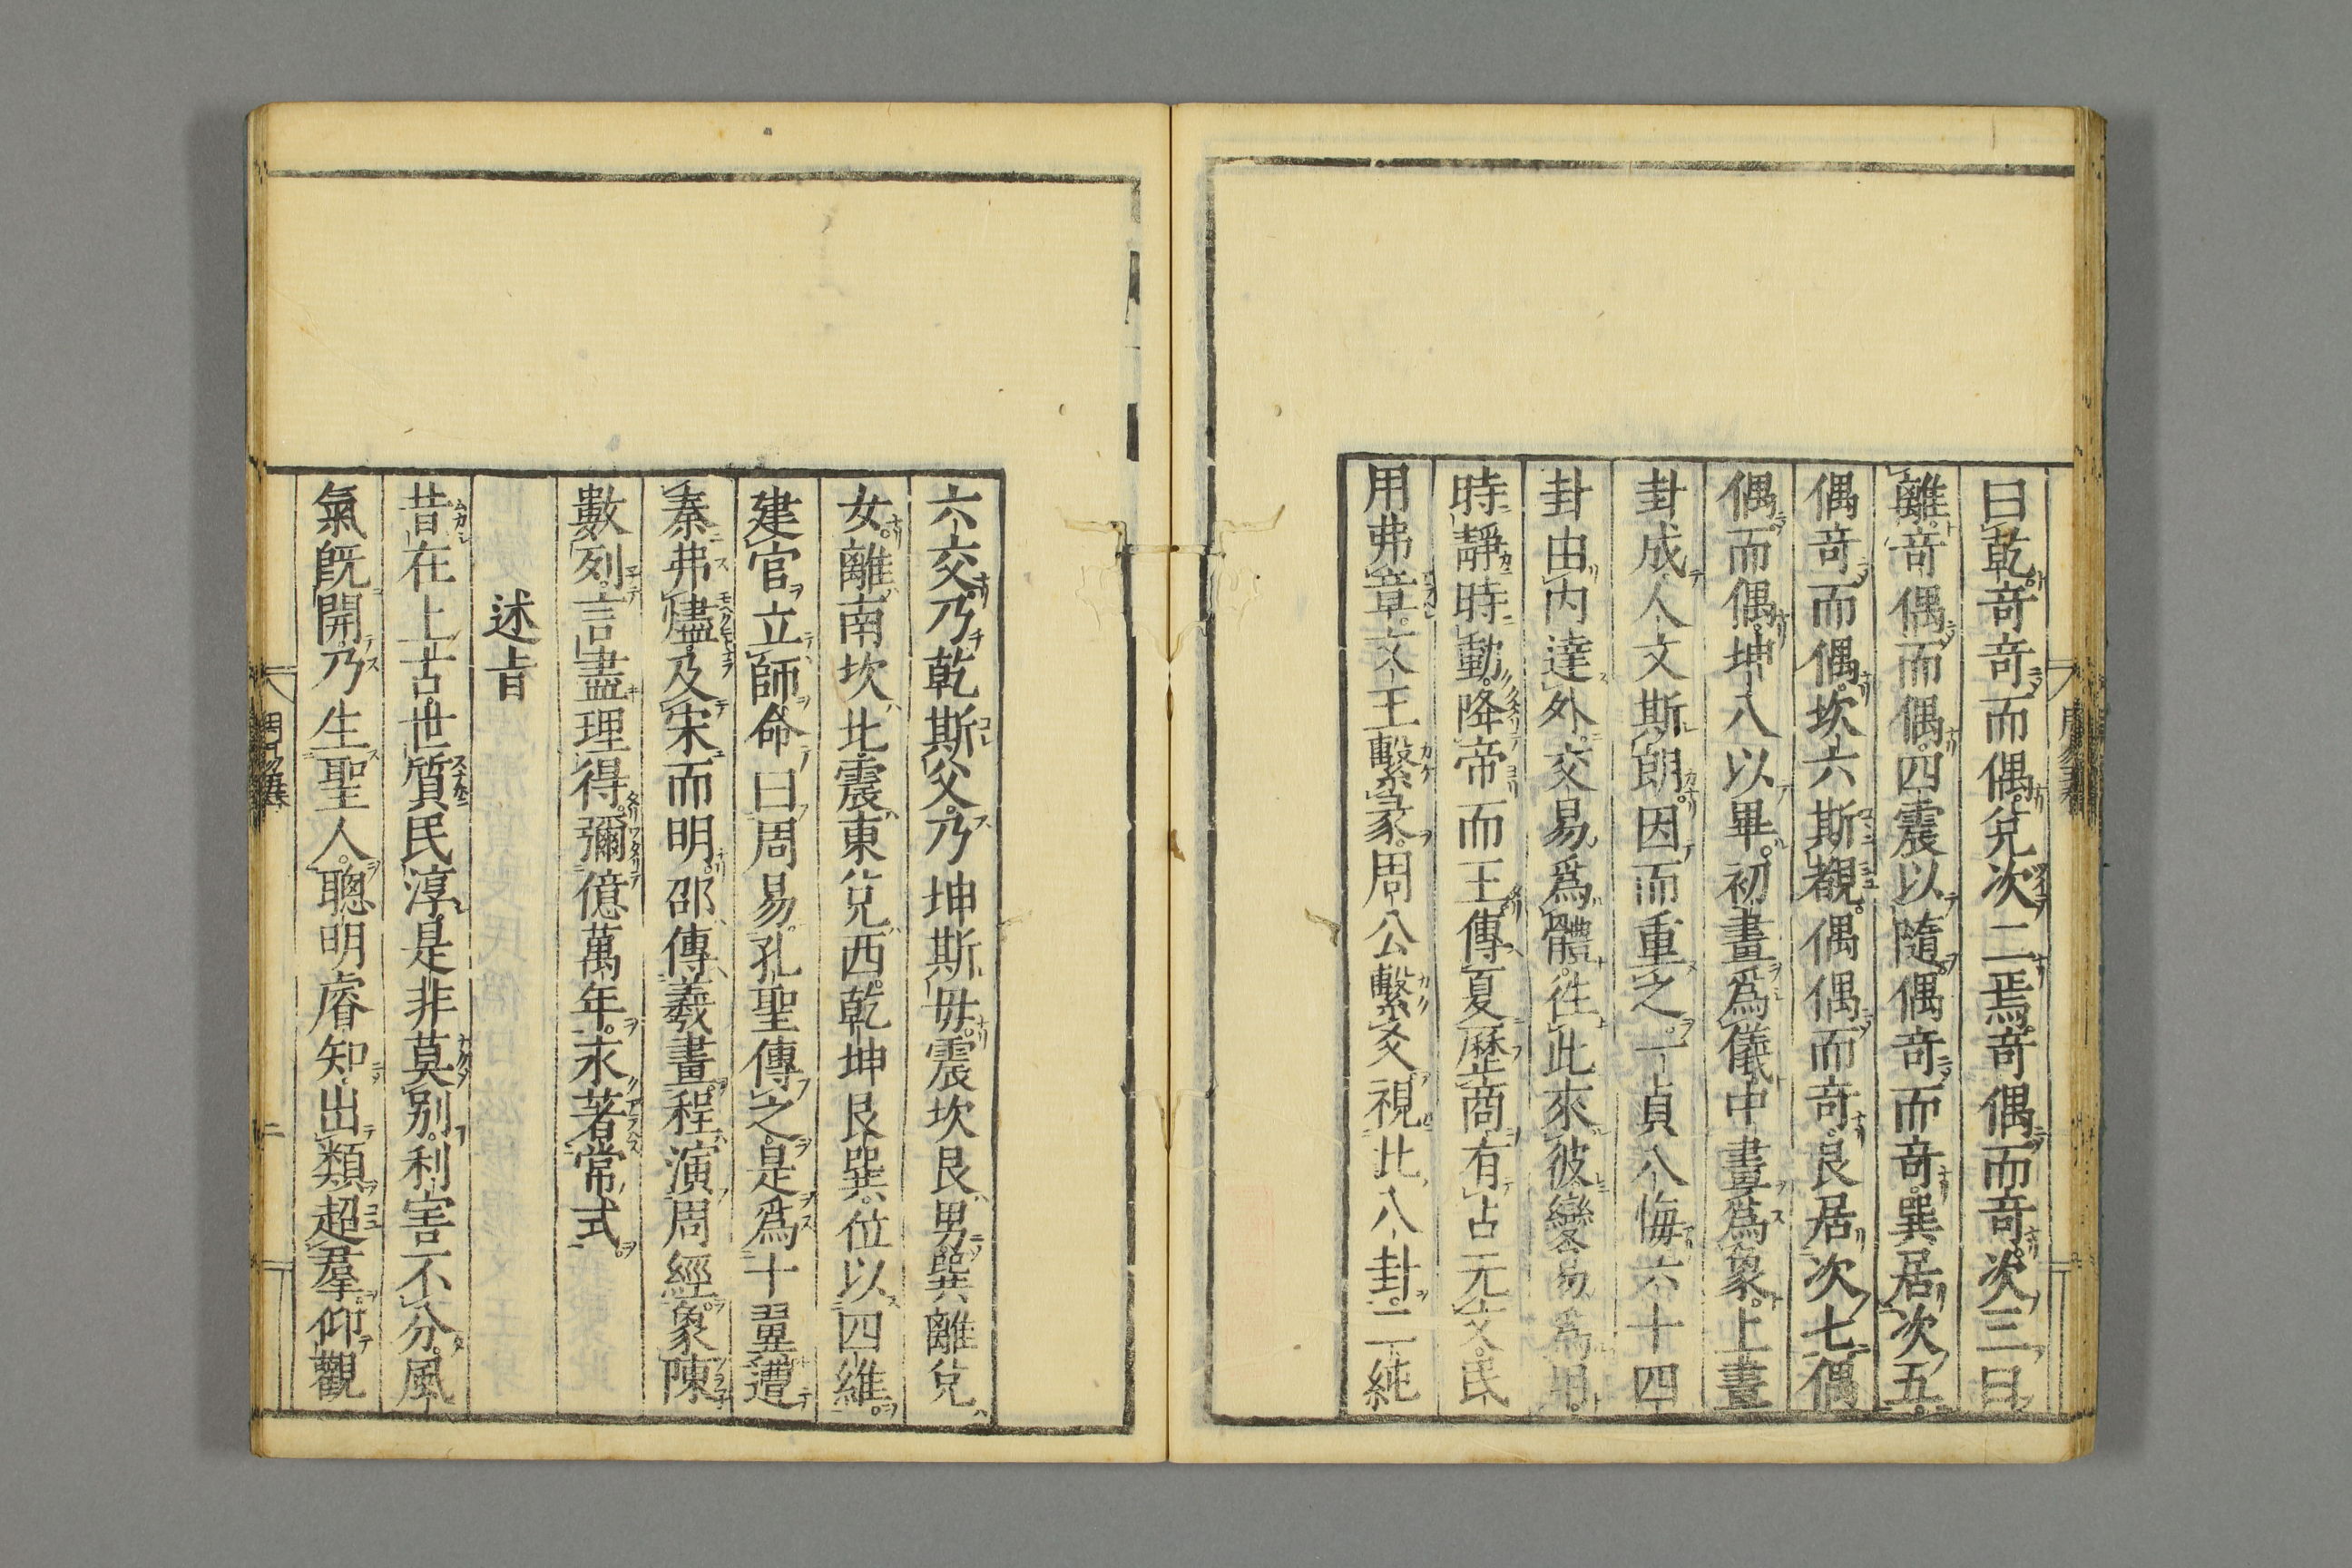 曰乾竒竒而偶兊次二焉竒偶而竒次三曰
離竒偶而偶四震以隨偶竒而竒巽居次五
偶竒而偶坎六斯覩偶偶而竒艮居次七偶
偶而偶坤八以畢初畫爲儀中畫爲象上畫
卦成人文斯朗因而重之一貞八悔六十四
卦由内達外交易爲體徃此來彼變易爲用
時靜時動降帝而王傳夏歷商有占无文民
用弗章文王繫彖周公繫爻視此八卦二純
六交乃乾斯父乃坤斯毋震坎艮男巽離兊
女離南坎北震東兊西乾坤艮巽位以四維
建官立師命曰周易孔聖傳之是爲十翼遭
秦弗燼及宋而明邵傳羲畫程演周經象陳
數列言盡理得彌億萬年永著常式
述旨
昔在上古世質民淳是非莫别利害不分風
氣旣開乃生聖人聰明睿知出類超羣仰觀
周易五賛
二